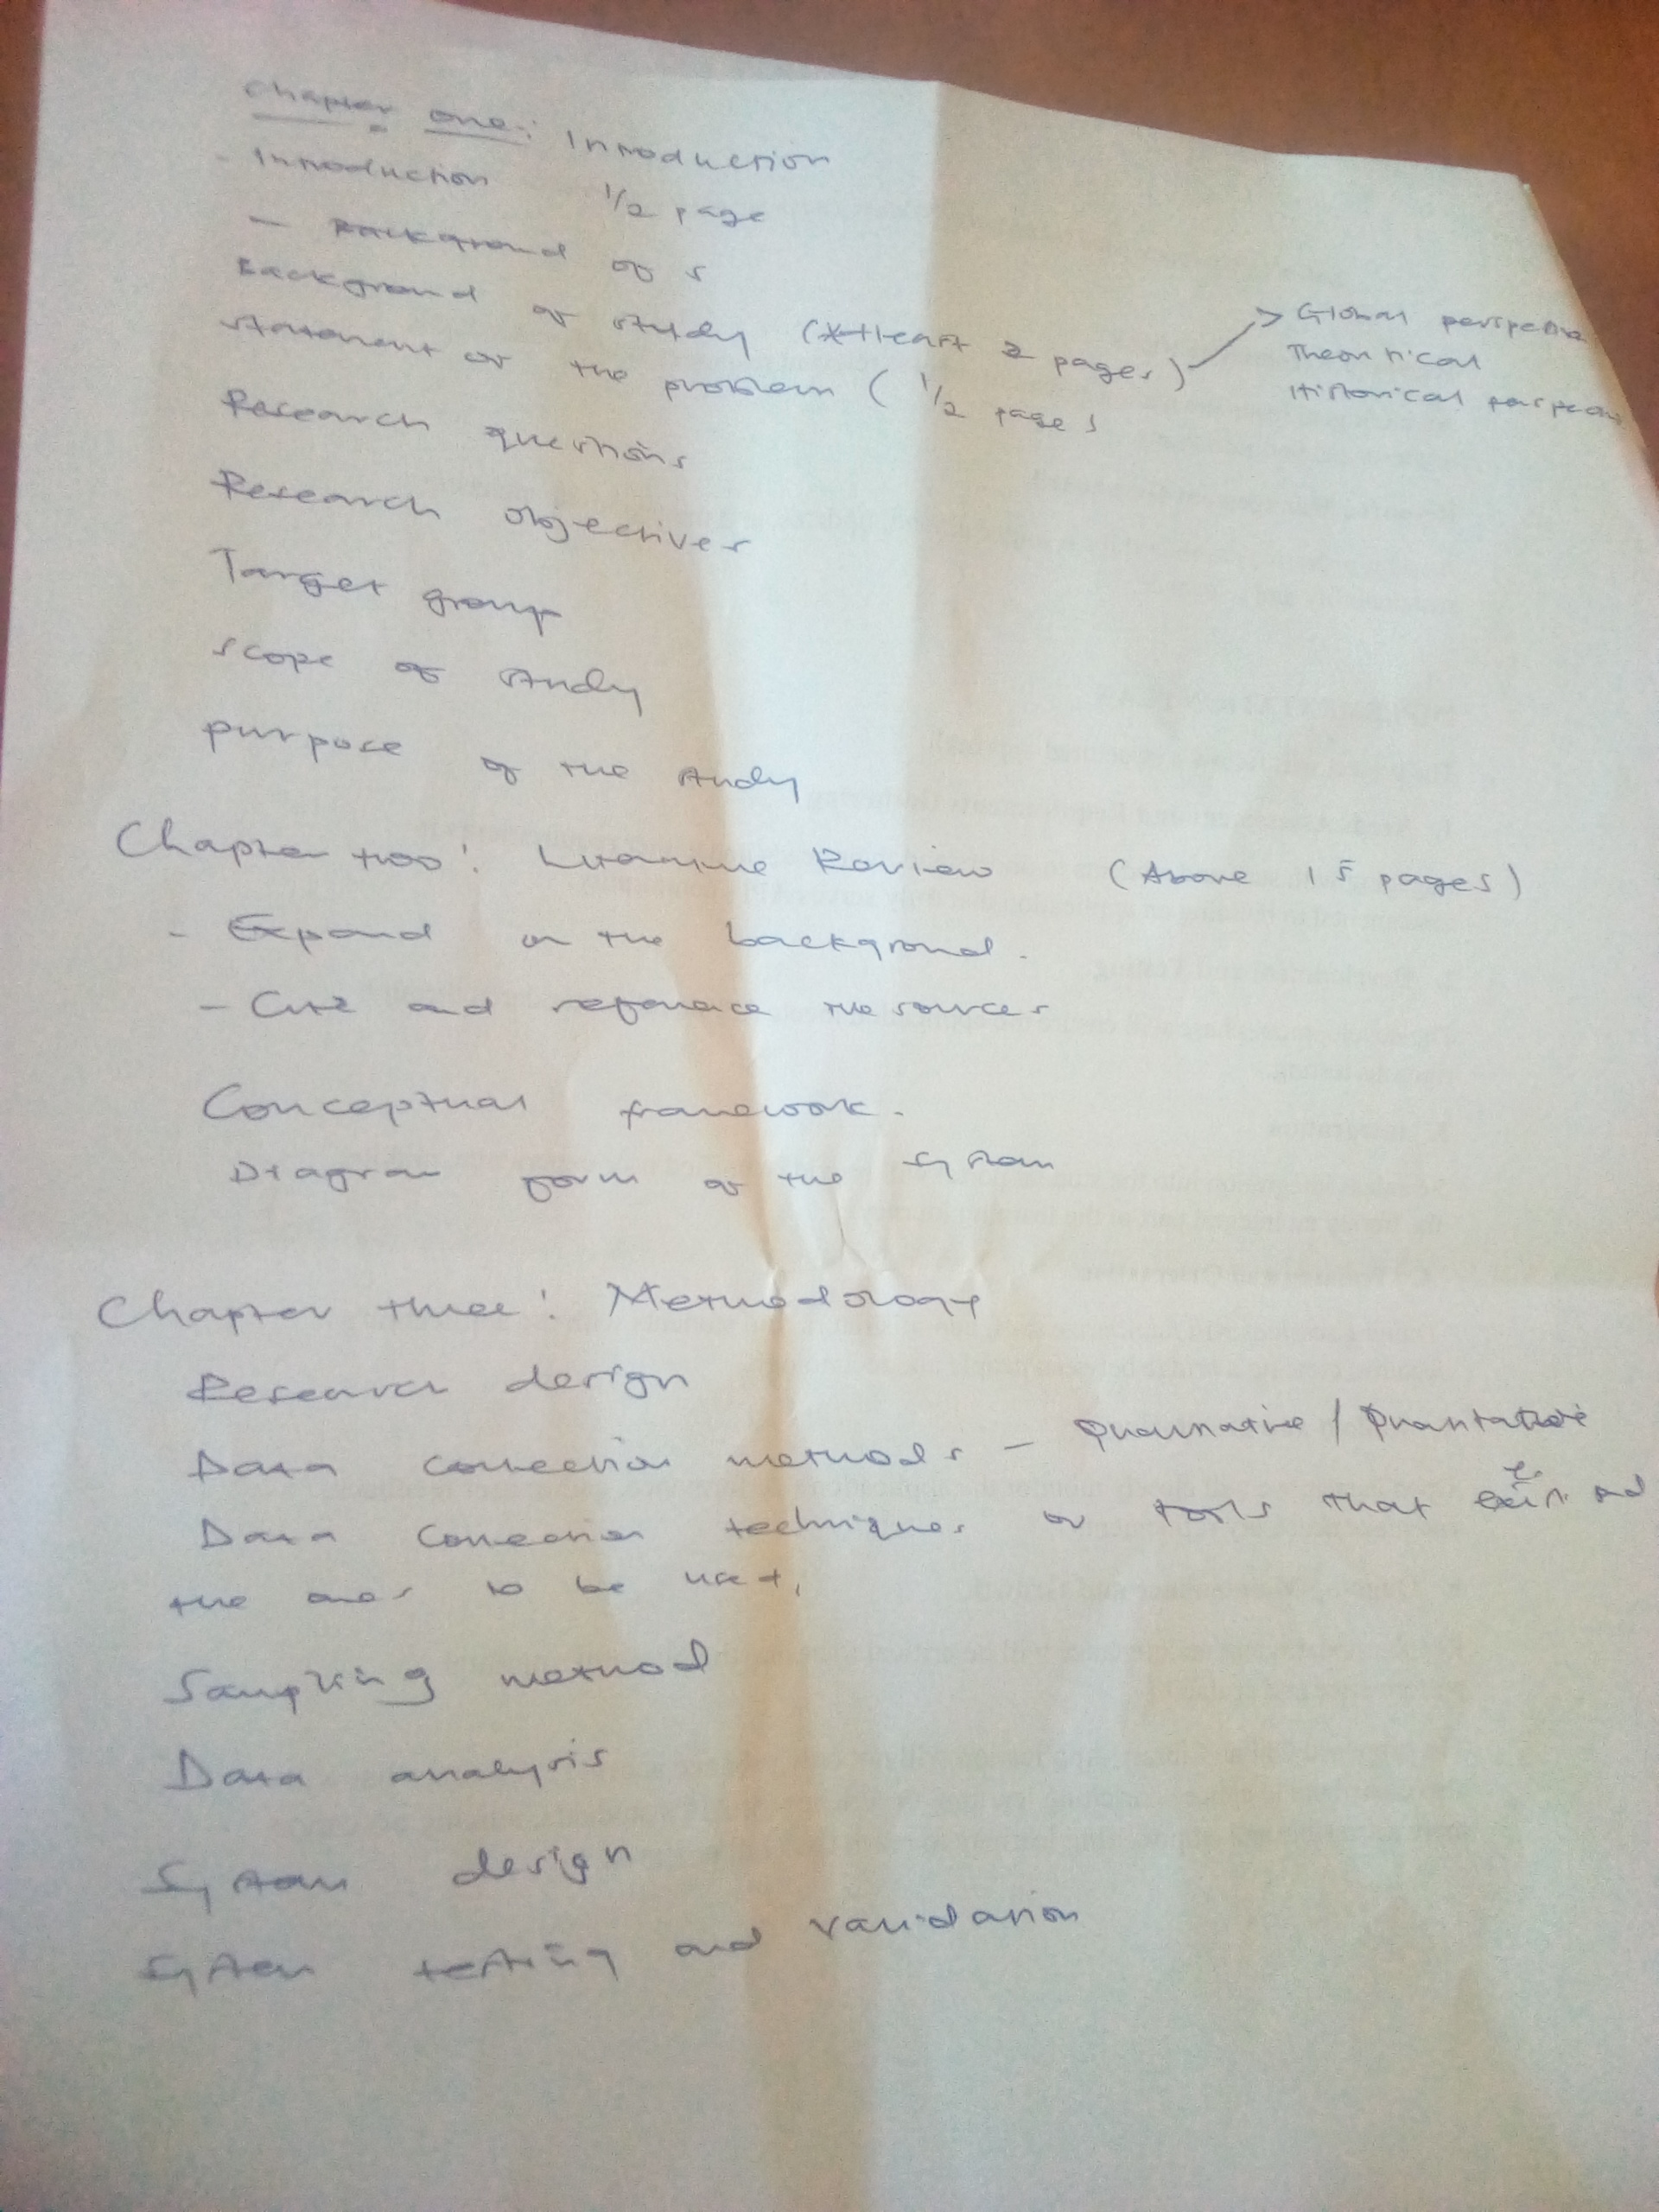 Chapter one: Introduction
- Introduction 1/2 page
- Background of s
Background of study (Atleast 2 pages) → Global perspective
Theoritical
Historical perspective
Statement of the problem (1/2 page)
Research questions
Research objectives
Target group
Scope of study
purpose of the study
Chapter two: Literature Review (Above 15 pages)
- Expand on the background.
- Cite and reference the sources
Conceptual framework.
Diagram form of the system
Chapter three: Methodology
Research design
Data collection methods - Qualitative / Quantative
Data collection techniques or tools that exist and
the ones to be used,
Sampling method
Data analysis
System design
System testing and validation